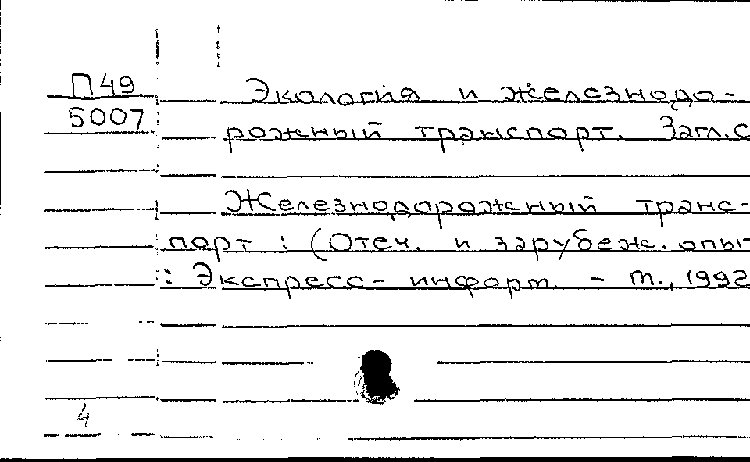 П49
5007
Экология и железнодо-
рожный транспорт. Загл.с
Железнодорожный транс-
порт : (Отеч. и зарубеж. опыт
: Экспресс-информ. - М., 1992
4